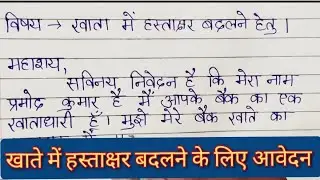 विषय → खाता में हस्ताक्षर बदलने हेतु।
महाशय,
सविनय निवेदन है कि मेरा नाम
प्रमोद कुमार है मैं आपके बैंक का एक
खाताधारी हूँ। मुझे मेरे बैंक खाते का
खाते में हस्ताक्षर बदलने के लिए आवेदन